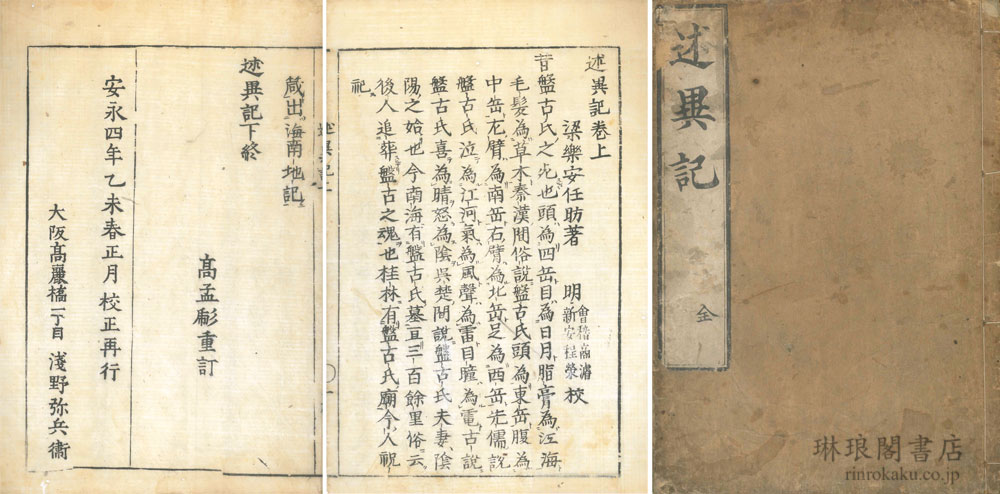 述異記
全
述異記卷上
梁樂安任昉著 明 會稽商濬 新安程榮 校
昔盤古氏之死也頭為四岳目為日月脂膏為江海
毛髮為草木秦漢間俗說盤古氏頭為東岳腹為
中岳左臂為南岳右臂為北岳足為西岳先儒說
盤古氏泣為江河氣為風聲為雷目瞳為電古說
盤古氏喜為晴怒為陰吳楚間說盤古氏夫妻陰
陽之始也今南海有盤古氏墓亘三百餘里俗云
後人追葬盤古之魂也桂林有盤古氏廟今人祝
祀
蔵出海南地記
述異記下終
高孟彪重訂
安永四年乙未春正月校正再行
大阪高麗橋一丁目 淺野弥兵衛
琳琅閣書店
rinrokaku.co.jp